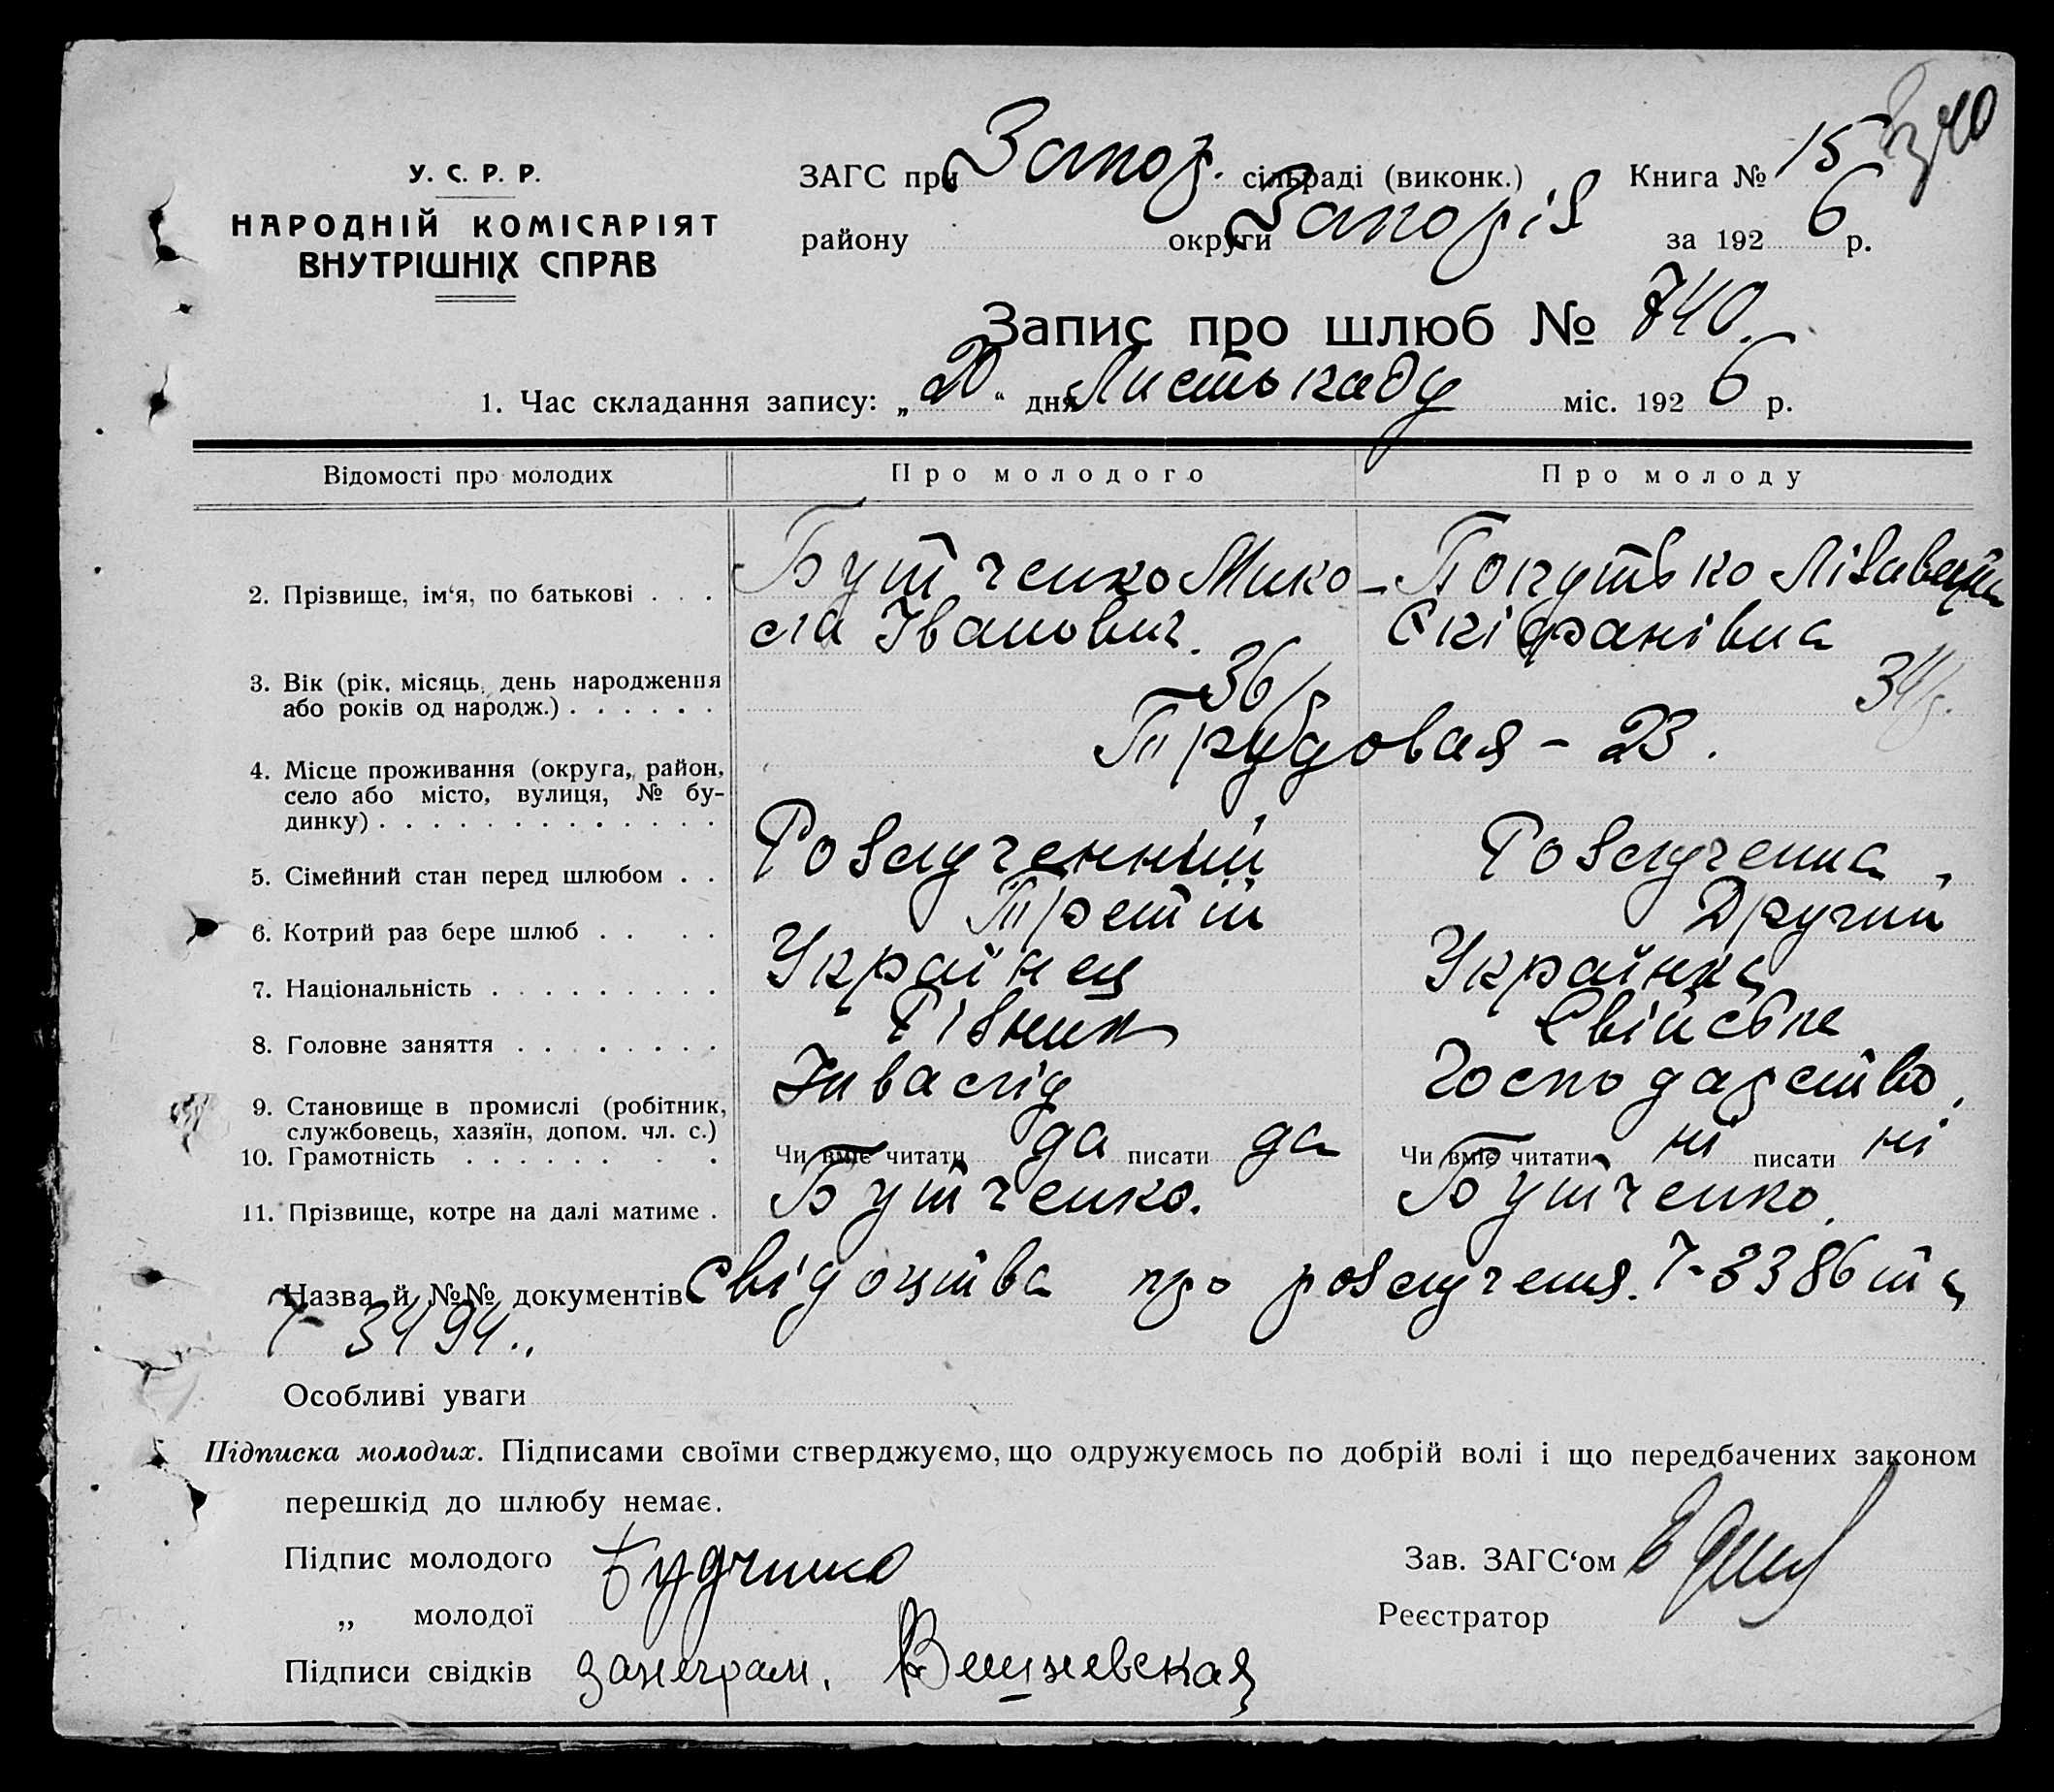 740
У. С. Р. Р.
НАРОДНІЙ КОМІСАРІЯТ
ВНУТРІШНІХ СПРАВ
ЗАГС при Запор. сільраді (виконк.) Книга № 15
району округи Запоріз за 1926 р.
Запис про шлюб № 740.
1. Час складання запису: „20“ дня Листопаду міс. 1926 р.
Відомості про молодих Про молодого Про молоду
2. Прізвище, ім‘я, по батькові . . . Бутченко Мико- Покутько Лізавета
ла Іванович. Єпіфанівна
3. Вік (рік, місяць, день народження
або років од народж.) . . . . . . 36/р 34/р.
4. Місце проживання (округа, район,
село або місто, вулиця, № бу-
динку) . . . . . . . . . . . . . Трудовая - 23.
5. Сімейний стан перед шлюбом . . Розлученний Розлученна,
6. Котрий раз бере шлюб . . . . Третій Другий
7. Національність . . . . . . . . . Українец Українка
8. Головне заняття . . . . . . . . Різник Свійське
9. Становище в промислі (робітник,
службовець, хазяїн, допом. чл. с.) Інвалід Господарство,
10. Грамотність . . . . . . . . Чи вміє читати да писати да Чи вміє читати ні писати ні
11. Прізвище, котре на далі матиме . Бутченко. Бутченко.
Назва й №№ документів Свідоцтва про розлучення. 7-3386 та
7-3494..
Особливі уваги
Підписка молодих. Підписами своїми стверджуємо, що одружуємось по добрій волі і що передбачених законом
перешкід до шлюбу немає.
Підпис молодого Будчинко Зав. ЗАГС‘ом
„ молодої Реєстратор
Підписи свідків за неграм. Вешневская